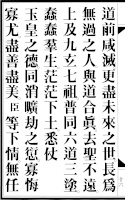 道前咸滅更盡未來之世長爲
無過之人與道合眞去聖不遠
上及九玄七祖普同六道三塗
蠢蠢羣生茫茫下土悉仗
玉皇之德同消曠劫之愆寡悔
寡尤盡善盡美臣等下情無任